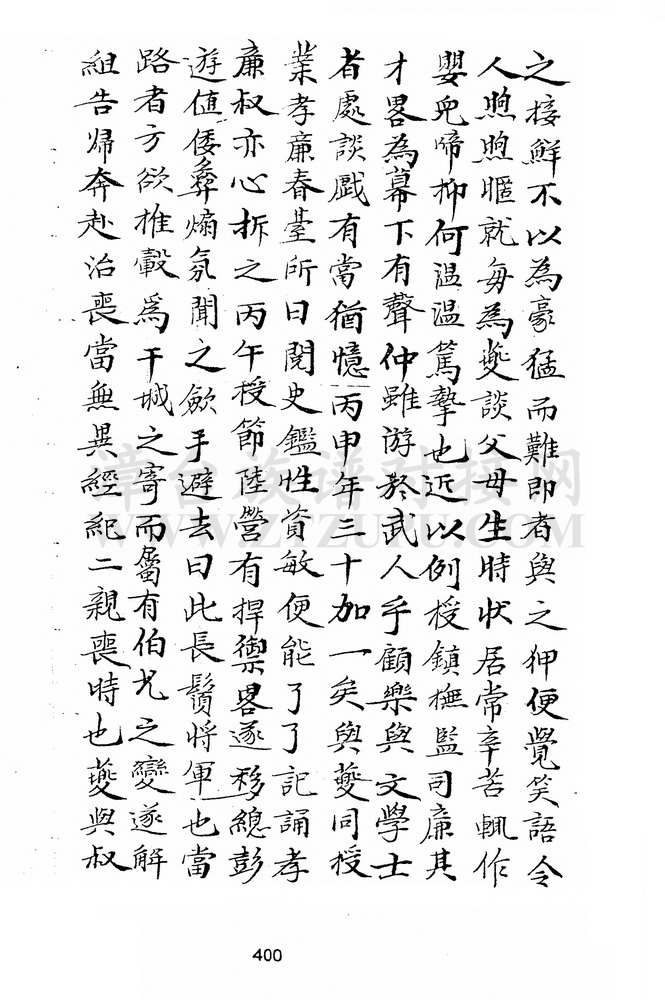 之接鮮不以為豪猛而難即者與之狎便覺笑語令
人煦煦暱就每為夔談父母生時狀居常辛苦輒作
嬰兒啼抑何溫溫篤摯也近以例授鎮撫監司廉其
才畧為幕下有聲仲雖游於武人乎顧樂與文學士
者處談戲有當猶憶丙申年三十加一矣與夔同授
業孝廉春臺所日閱史鑑性資敏便能了了記誦孝
廉叔亦心折之丙午授節陸營有捍禦畧遂移總彭
遊值倭彝煽氛聞之歛手避去曰此長鬚將軍也當
路者方欲推轂為干城之寄而屬有伯兄之變遂解
組告歸奔赴治喪當無異經紀二親喪時也夔與叔
漳台族谱对接网
WWW.ZTZUPU.COM
400